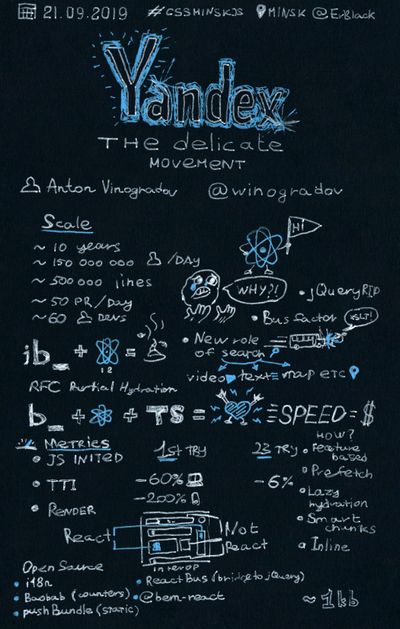 21.09.2019 #CSSMINSKJS MINSK @ErBlack
Yandex
THE delicate
MOVEMENT
Anton Vinogradov @winogradov
Scale
~ 10 years
~ 150 000 000 /DAY
~ 500 000 lines
~ 50 PR/DAY
~60 DEVS
Hi
WHY?!
• jQuery RIP
• Bus factor
XSLT!
• New role
of search
video text map etc
ib_ + =
1 2
RFC Partial Hydration
b_ + + TS = = SPEED = $
METRICS
• JS INITED
• TTI
• RENDER
1st TRY
-60%
-200%
2d TRY
-6%
HOW?
• Feature
based
• Prefetch
• Lazy
hydration
• Smart
chunks
• Inline
~ 1kb
React
Not
React
Interop
Open Source
• i18n
• Baobab (counters)
• pushBundle (static)
• React Bus (bridge to jQuery)
• @bem-react